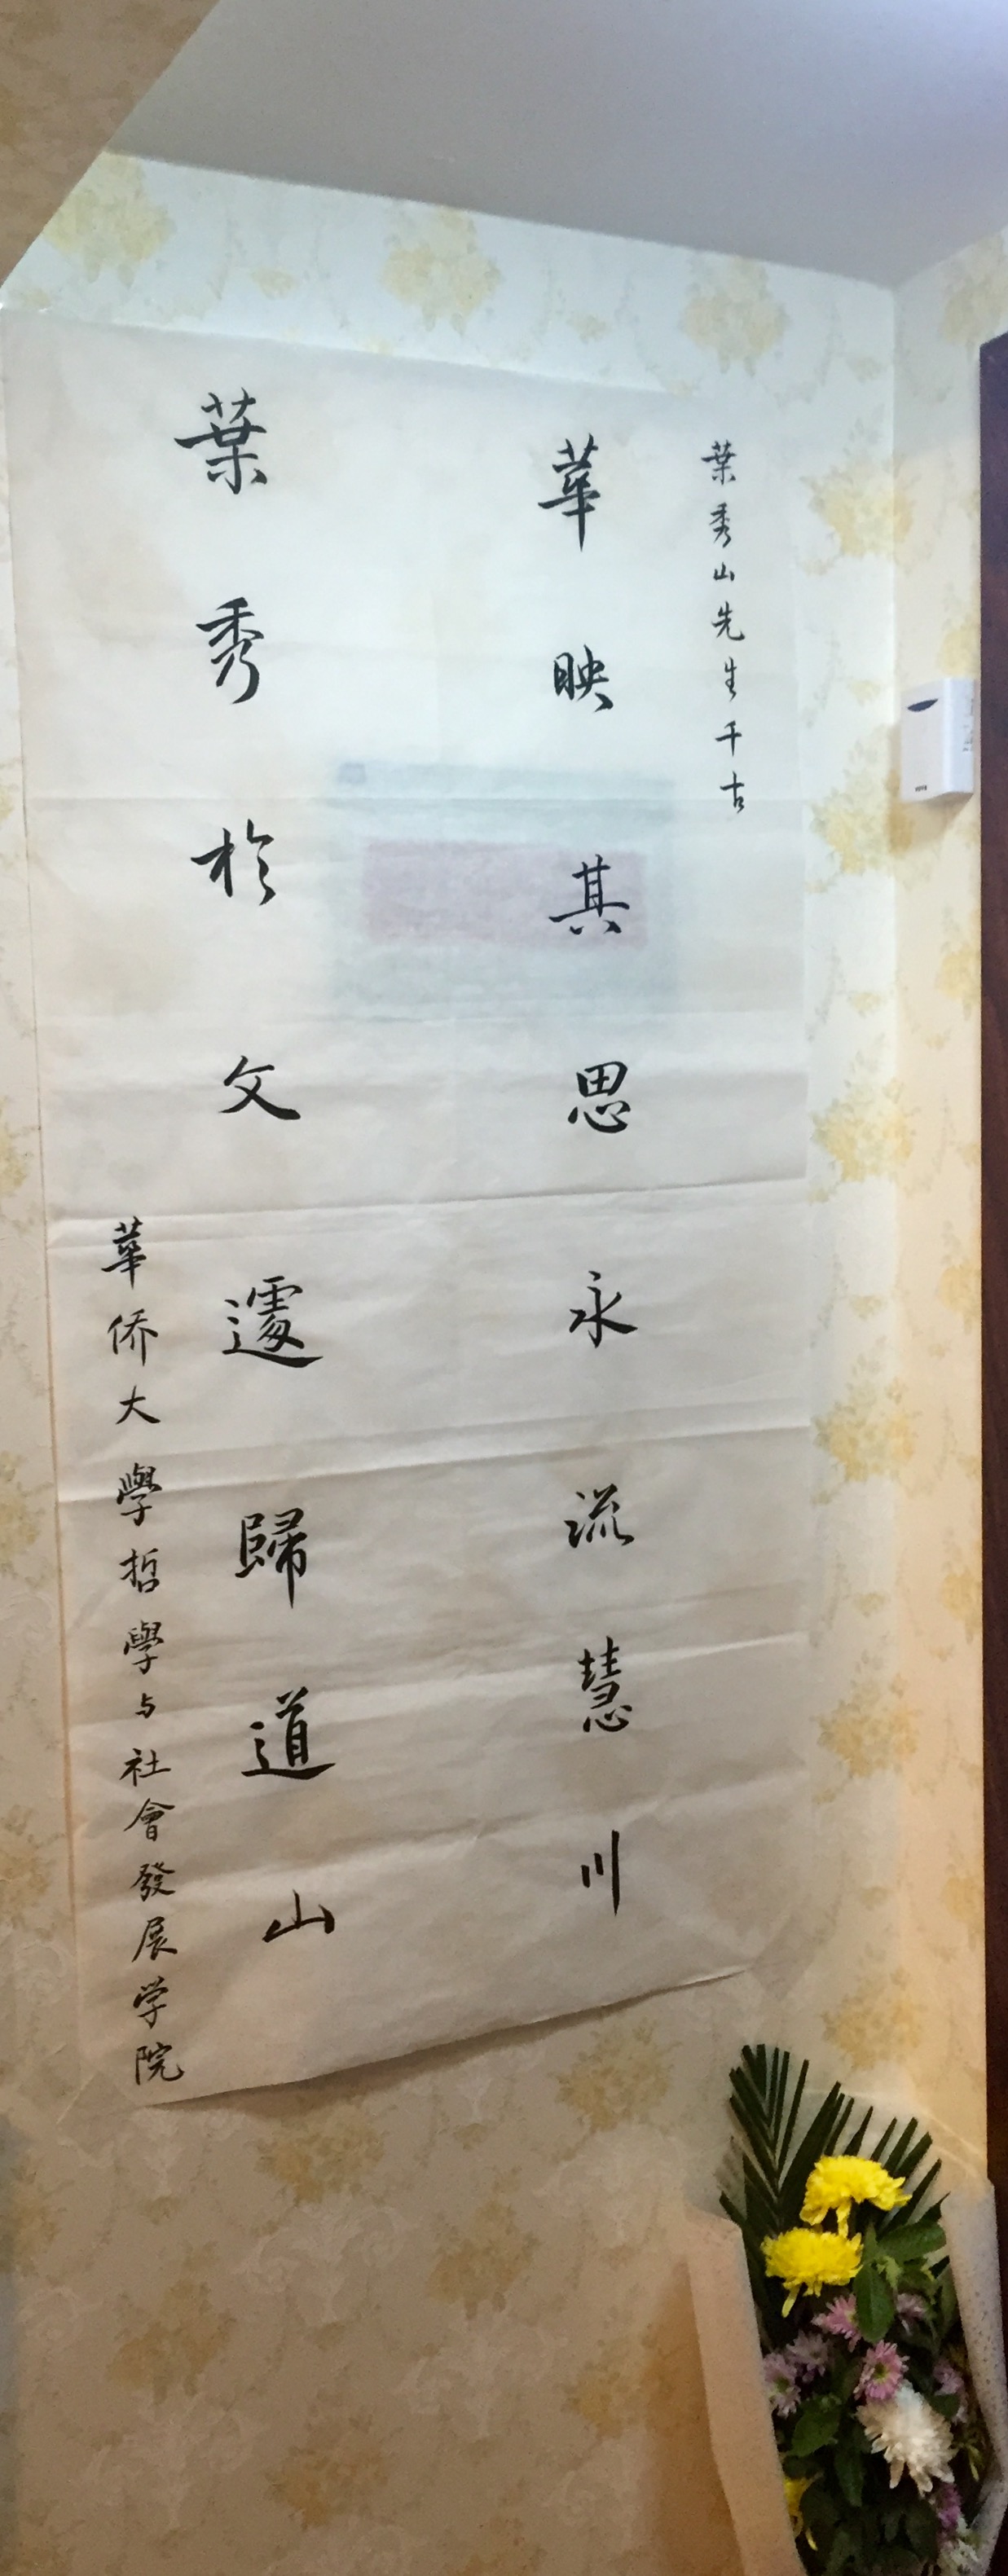 葉秀山先生千古
華映其思永流慧川
葉秀於文遽歸道山
華侨大學哲學与社會發展学院